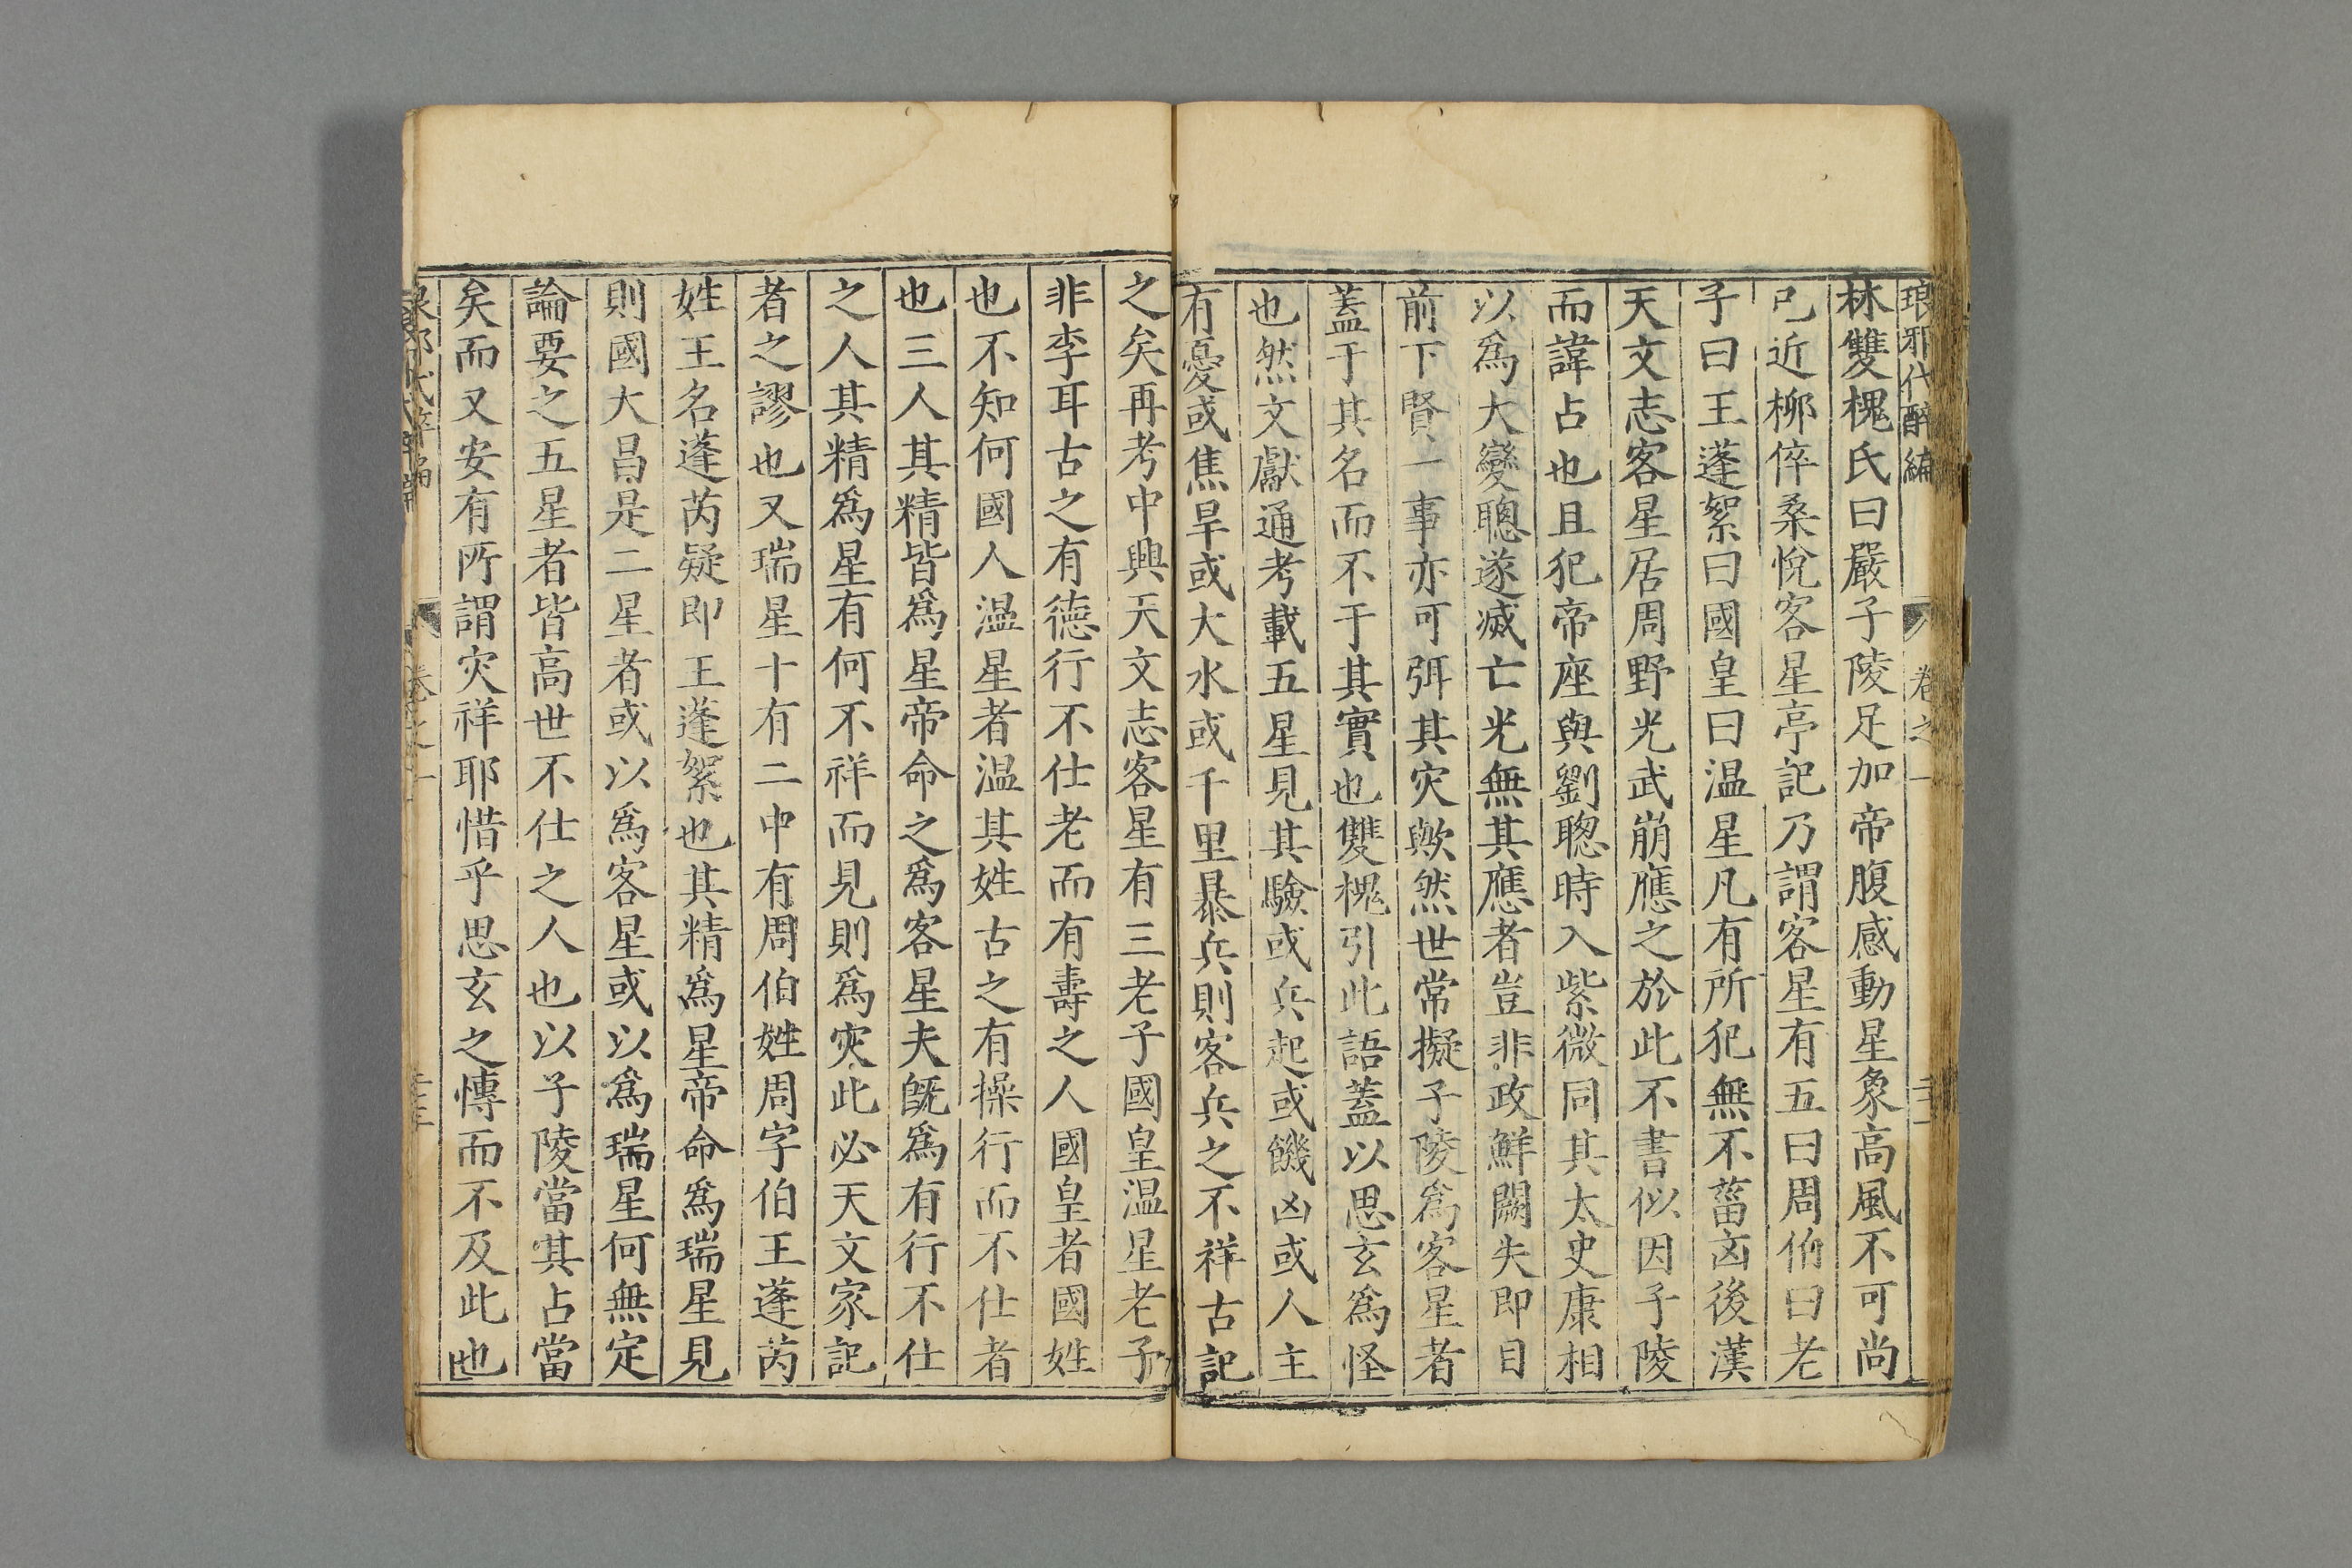 琅邪代醉編　卷之一
林雙槐氏曰嚴子陵足加帝腹感動星象高風不可尚
已近柳倅桑悅客星亭記乃謂客星有五曰周伯曰老
子曰王蓬絮曰國皇曰温星凡有所犯無不菑凶後漢
天文志客星居周野光武崩應之於此不書似因子陵
而諱占也且犯帝座與劉聰時入紫微同其太史康相
以爲大變聰遂滅亡光無其應者豈非政鮮闕失即目
前下賢一事亦可弭其灾歟然世常擬子陵爲客星者
蓋于其名而不于其實也雙槐引此語蓋以思玄爲怪
也然文獻通考載五星見其驗或兵起或饑凶或人主
有憂或焦旱或大水或千里暴兵則客兵之不祥古記
之矣再考中興天文志客星有三老子國皇温星老子
非李耳古之有德行不仕老而有壽之人國皇者國姓
也不知何國人温星者温其姓古之有操行而不仕者
也三人其精皆爲星帝命之爲客星夫旣爲有行不仕
之人其精爲星有何不祥而見則爲灾此必天文家記
者之謬也又瑞星十有二中有周伯姓周字伯王蓬芮
姓王名蓬芮疑即王蓬絮也其精爲星帝命爲瑞星見
則國大昌是二星者或以爲客星或以爲瑞星何無定
論要之五星者皆高世不仕之人也以子陵當其占當
矣而又安有所謂灾祥耶惜乎思玄之慱而不及此也
卷之一